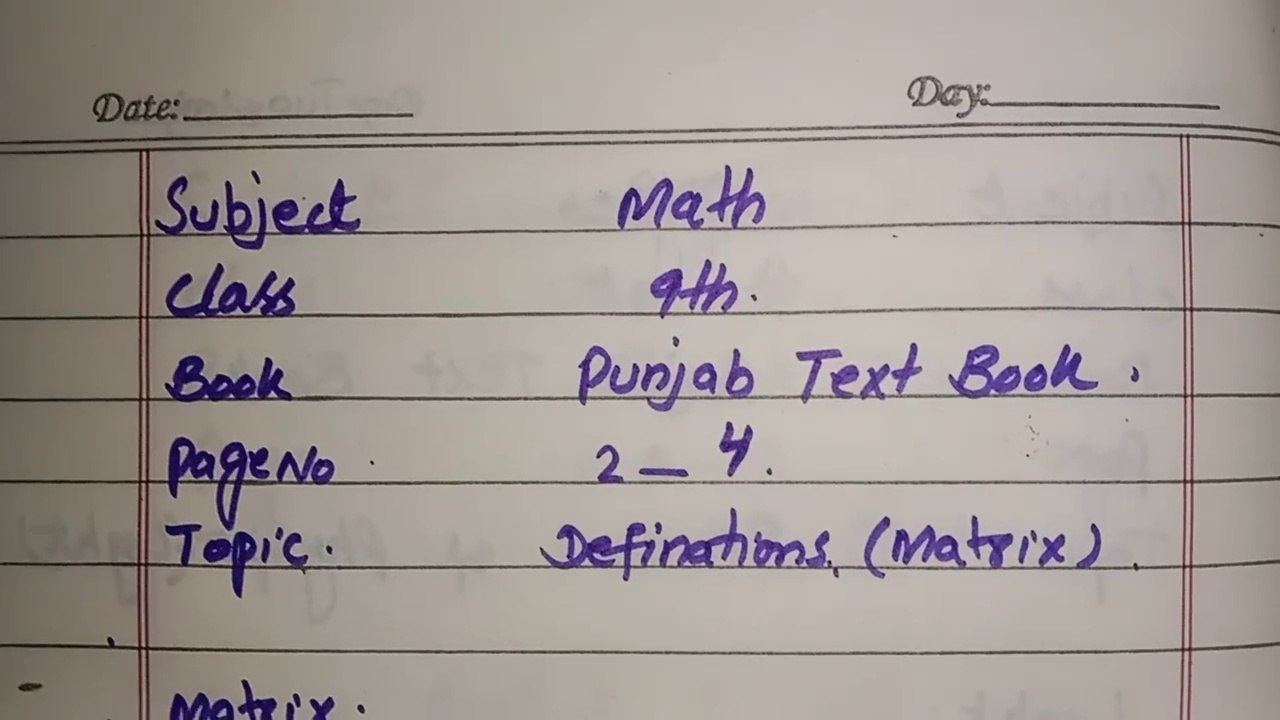 Date: Day:
Subject Math
Class 9th.
Book Punjab Text Book.
Page No 2 — 4.
Topic. Definations. (Matrix).
Matrix.